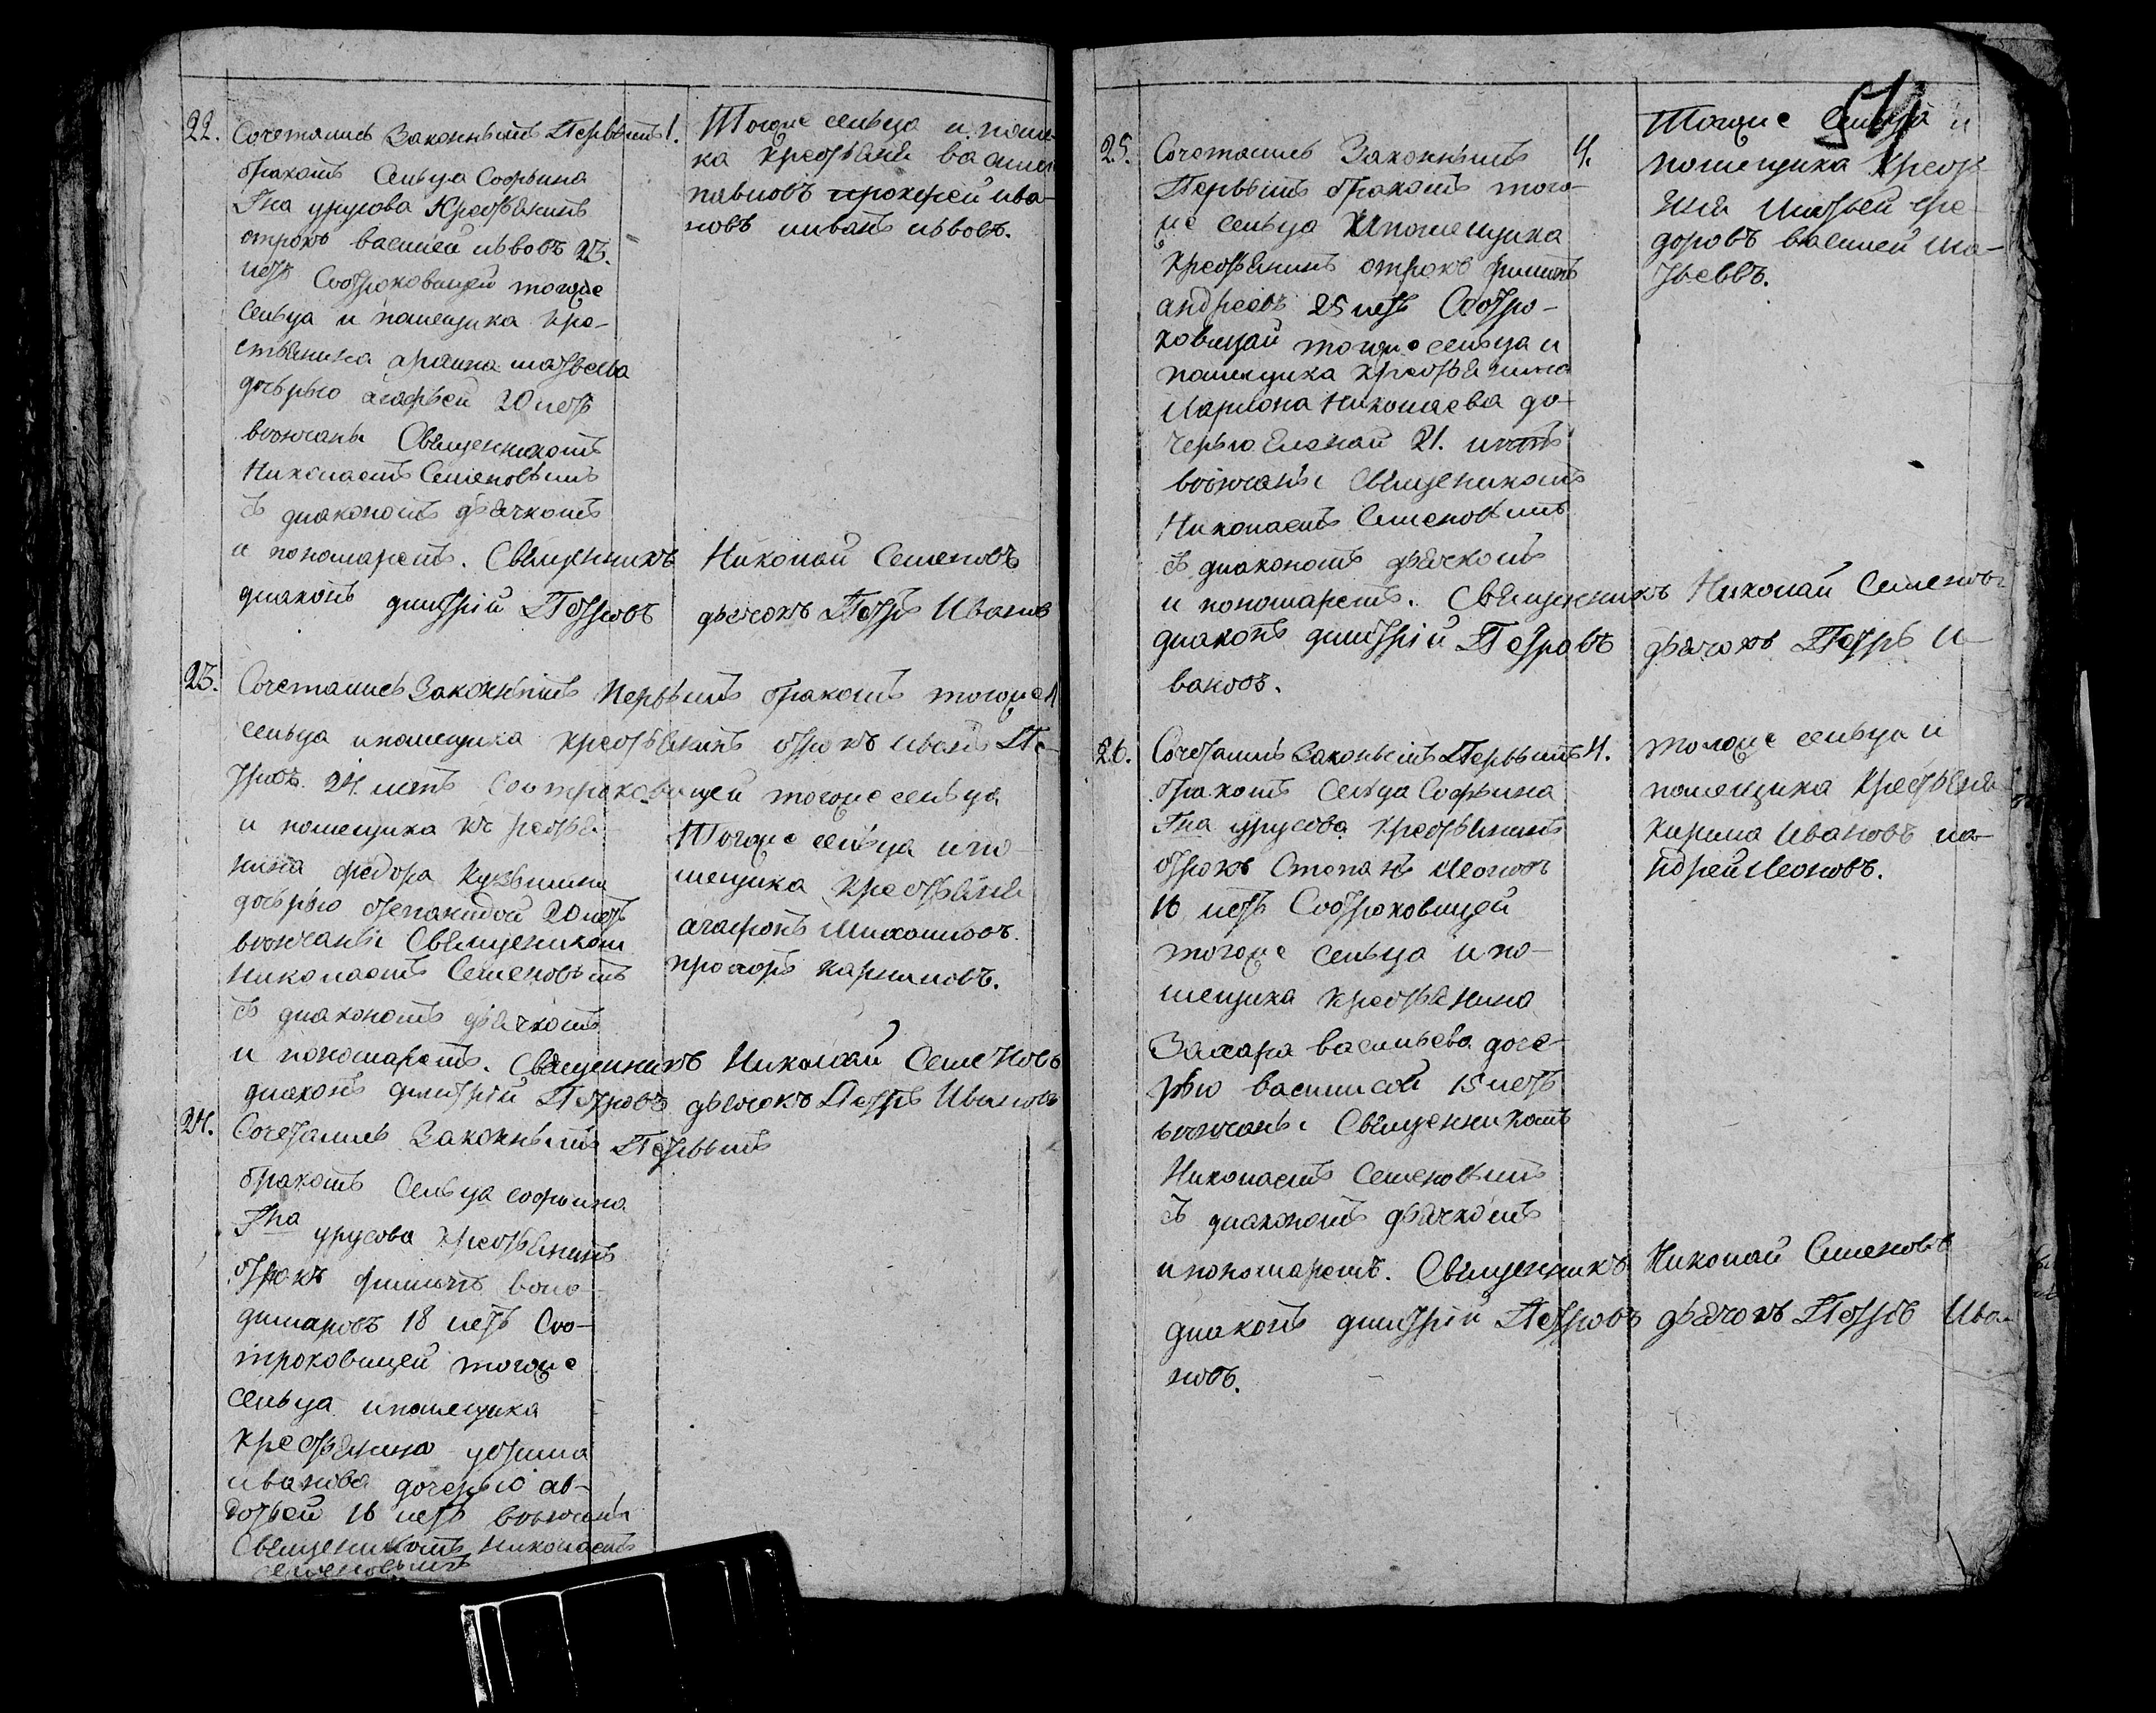 22. Сочетались Законнымъ Первымъ 1.
бракомъ Сельца Софьина
Гна урусова Крестьянинъ
отрокъ василей львовъ 23.
летъ Соотроковицей тогоже
Сельца и помещика кре-
стьянина матвеева
дочьрью агафьей 20 летъ
венчаны Священникомъ
Николаемъ Семеновымъ
съ диакономъ дьячкомъ
и пономаремъ. Священникъ Николай Семеновъ
диаконъ димтрій Петровъ дьячокъ Петръ Ивановъ
Тогоже сельца и поме-
ка крестьяне васили
павловъ ива-
новъ иванъ львовъ.
23. Сочетались Законнымъ Первымъ бракомъ тогоже
сельца ипомещика крестьянинъ отрокъ иванъ Пе-
тровъ 24. летъ Соотроковицей тогоже сельца
и помещика крестья-
нина федора Кузьмина
дочьрью степанидой 20 летъ
венчаны Священиком
Николаемъ Семеновымъ
съ диакономъ дьячкомъ
и пономаремъ. Священникъ Николай Семеновъ
диаконъ димтрій Петровъ дьячокъ Петръ Ивановъ
Тогоже сельца ипо-
мещика крестьяне
агафонъ
прохоръ карпиловъ.
24. Сочетались Законнымъ Первымъ
бракомъ Сельца софьина
Гна урусова крестьянинъ
отрокъ филипъ воло-
димаровъ 18 летъ Соо-
троковицей тогоже
сельца ипомещика
крестьянина
иванова дочерью ав-
дотьей 16 летъ венчаны
Священикомъ Николаемъ
семеновымъ
25. Сочетались Законнымъ 4.
Первымъ бракомъ того-
же сельца Ипомещика
крестьянинъ отрокъ филипъ
андреевъ 25 летъ Соотро-
ковицей тогоже сельца и
помещика крестьянина
Илариона Николаева до-
черью Еленой 21. летъ
венчаны Священикомъ
Николаемъ Семеновымъ
съ диакономъ дьячкомъ
и пономаремъ. Священникъ Николай Семеновъ
диаконъ димтрій Петровъ дьячокъ Петръ И-
вановъ.
54
Тогоже Сельца и
помещика крестья-
матвей фе-
доровъ василей ма-
твеевъ.
26. Сочетались Законнымъ Первымъ 4.
бракомъ Сельца Софьина
Гна урусова крестьянинъ
отрокъ Степанъ леоновъ
16 летъ Соотроковицей
тогоже сельца ипо-
мещика крестьянина
Захара васильева доче-
рью василисой 15 летъ
венчаны Священникомъ
Николаемъ Семеновымъ
съ диакономъ дьячкомъ
ипономаремъ. Священникъ Николай Семеновъ
диаконъ димтрій Петровъ дьячокъ Петръ Ива-
новъ.
тогоже сельца и
помещика крестьяне
кирила Ивановъ иа-
ндрей леоновъ.